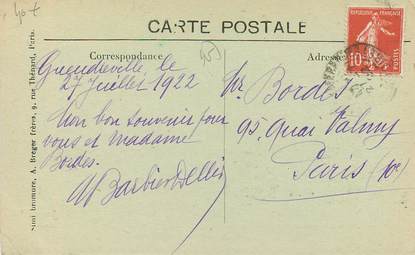 40 f
CARTE POSTALE
Correspondance
Adresse
15
RÉPUBLIQUE FRANÇAISE
10
Simi bromure, A. Breger frères, 9, rue Thénard, Paris.
le
27 Juillet 1922
Mon bon souvenir pour
vous et madame
Bordes.
Mr Bordes
95, Quai Valmy
Paris (Xe)